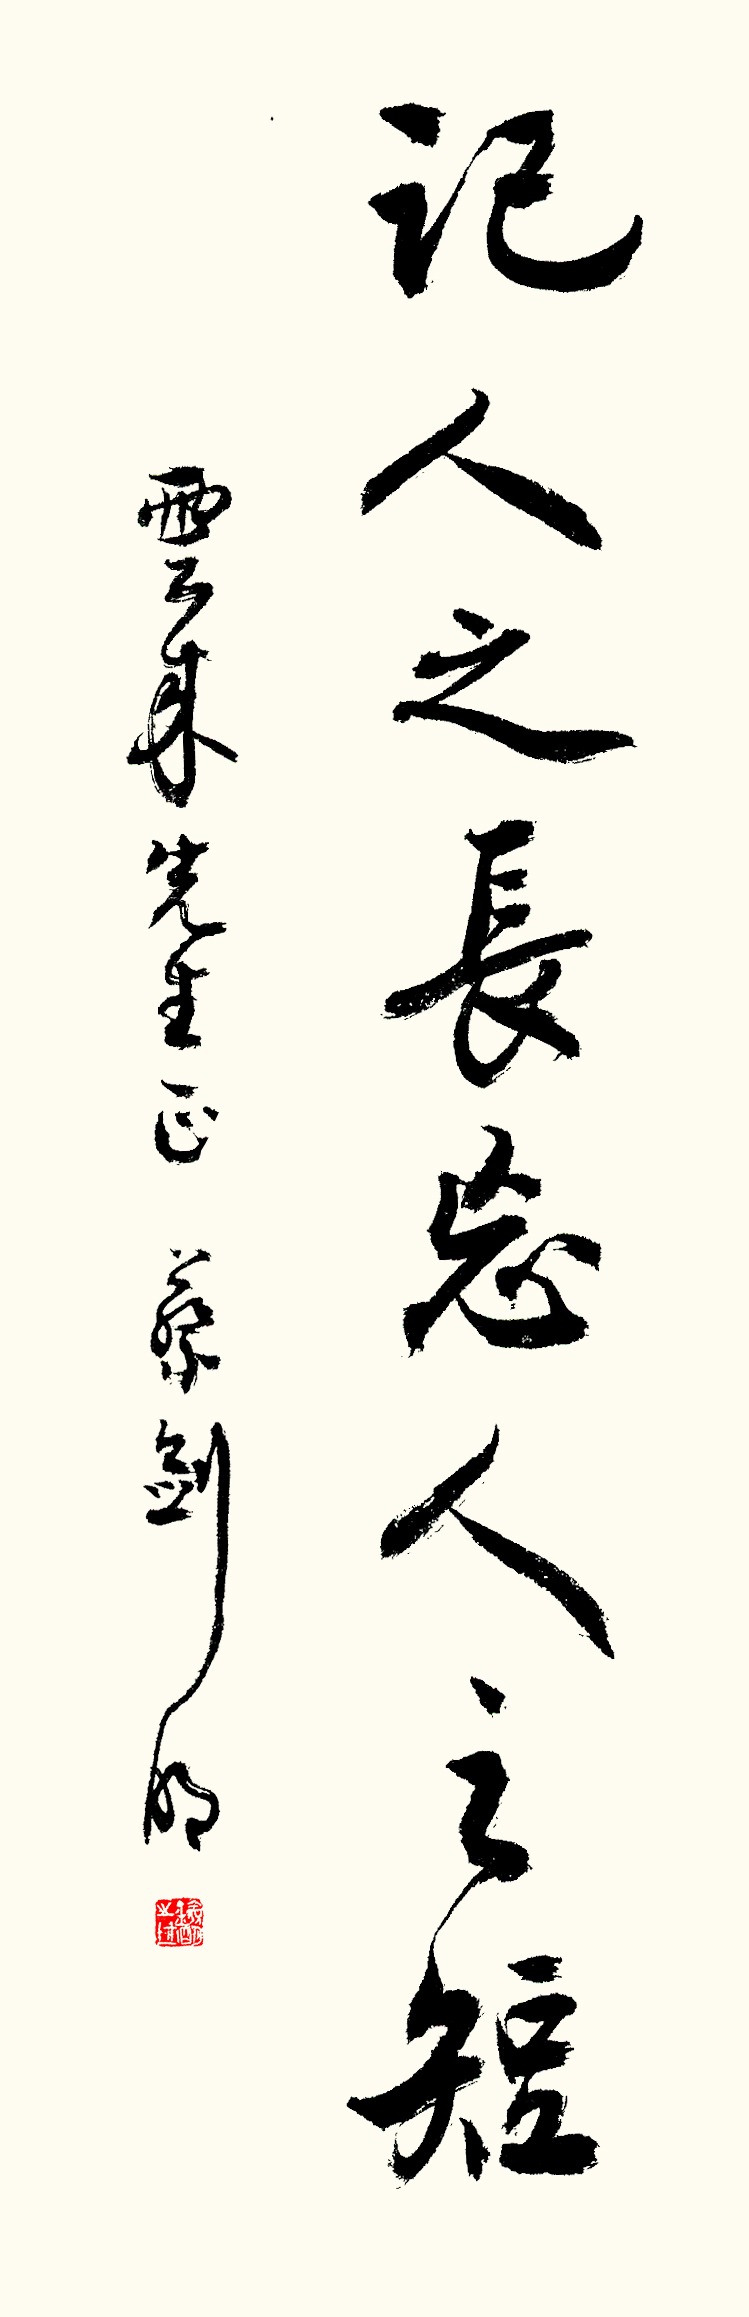 記人之長忘人之短
雲來先生正 蔡劍明